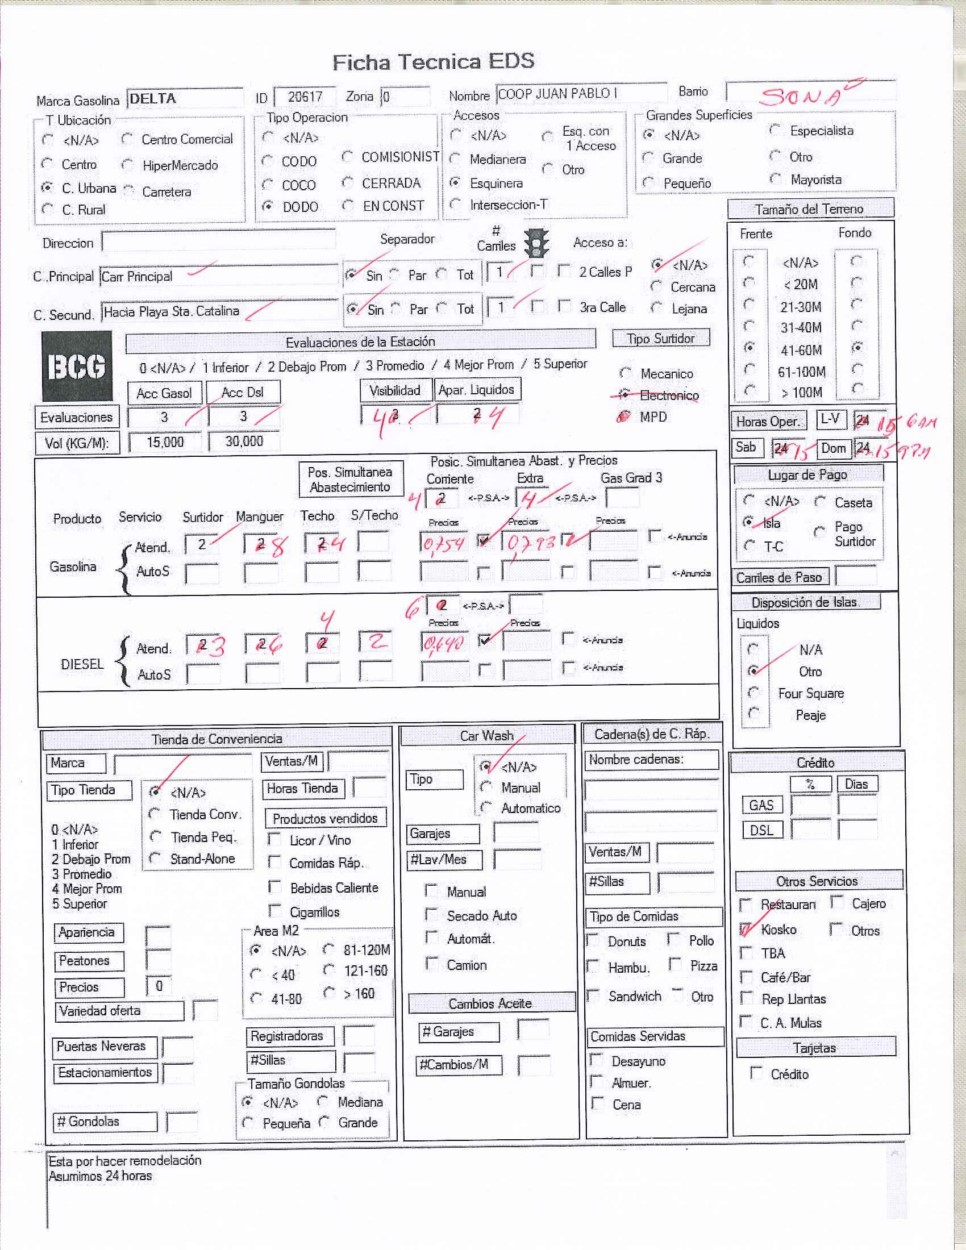 Ficha Tecnica EDS
Marca Gasolina DELTA ID 20617 Zona 0 Nombre COOP JUAN PABLO I Barrio SONA
T Ubicación Tipo Operacion Accesos Grandes Superficies
<N/A> Centro Comercial <N/A> <N/A> Esq. con 1 Acceso <N/A> Especialista
Centro HiperMercado CODO COMISIONIST Medianera Otro Grande Otro
C. Urbana Carretera COCO CERRADA Esquinera Pequeño Mayorista
C. Rural DODO EN CONST Interseccion-T
Tamaño del Terreno
Frente Fondo
<N/A>
< 20M
21-30M
31-40M
41-60M
61-100M
> 100M
Direccion Separador # Carriles Acceso a:
C .Principal Carr Principal Sin Par Tot 1 2 Calles P <N/A>
Cercana
C. Secund. Hacia Playa Sta. Catalina Sin Par Tot 1 3ra Calle Lejana
BCG
Evaluaciones de la Estación Tipo Surtidor
0 <N/A> / 1 Inferior / 2 Debajo Prom / 3 Promedio / 4 Mejor Prom / 5 Superior
Mecanico
Electronico
MPD
Acc Gasol Acc Dsl Visibilidad Apar. Liquidos
Evaluaciones 3 3 4 2 4
Vol (KG/M): 15,000 30,000
Horas Oper. L-V 24 15 6AM
Sab 24 15 Dom 24 15 9PM
Pos. Simultanea Abastecimiento
Posic. Simultanea Abast. y Precios
Corriente Extra Gas Grad 3
4 2 <-P.S.A-> 4 <-P.S.A->
Producto Servicio Surtidor Manguer Techo S/Techo Precios Precios Precios
Gasolina Atend. 2 2 8 2 4 0,754 0,793 <-Anuncia
AutoS <-Anuncia
6 2 <-P.S.A->
4 Precios Precios
DIESEL Atend. 2 3 2 6 2 2 0,640 <-Anuncia
AutoS <-Anuncia
Lugar de Pago
<N/A> Caseta
Isla Pago Surtidor
T-C
Carriles de Paso
Disposición de Islas
Liquidos
N/A
Otro
Four Square
Peaje
Tienda de Conveniencia
Marca Ventas/M
Tipo Tienda <N/A> Horas Tienda
Tienda Conv. Productos vendidos
Tienda Peq. Licor / Vino
Stand-Alone Comidas Ráp.
Bebidas Caliente
Cigarrillos
0 <N/A>
1 Inferior
2 Debajo Prom
3 Promedio
4 Mejor Prom
5 Superior
Apariencia
Peatones
Precios 0
Variedad oferta
Puertas Neveras
Estacionamientos
# Gondolas
Area M2
<N/A> 81-120M
< 40 121-160
41-80 > 160
Registradoras
#Sillas
Tamaño Gondolas
<N/A> Mediana
Pequeña Grande
Car Wash
Tipo <N/A>
Manual
Automatico
Garajes
#Lav/Mes
Manual
Secado Auto
Automát.
Camion
Cambios Aceite
# Garajes
#Cambios/M
Cadena(s) de C. Ráp.
Nombre cadenas:
Ventas/M
#Sillas
Tipo de Comidas
Donuts Pollo
Hambu. Pizza
Sandwich Otro
Comidas Servidas
Desayuno
Almuer.
Cena
Crédito
% Dias
GAS
DSL
Otros Servicios
Restauran Cajero
Kiosko Otros
TBA
Café/Bar
Rep Llantas
C. A. Mulas
Tarjetas
Crédito
Esta por hacer remodelación
Asumimos 24 horas